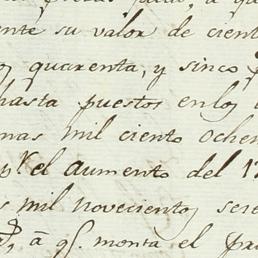 nte su valor de cient
quarenta, y sinco
hasta puestos enlos
nas mil ciento ochen
pr. el aumento del 1
s mil novecientos sese
, á q. monta el pr